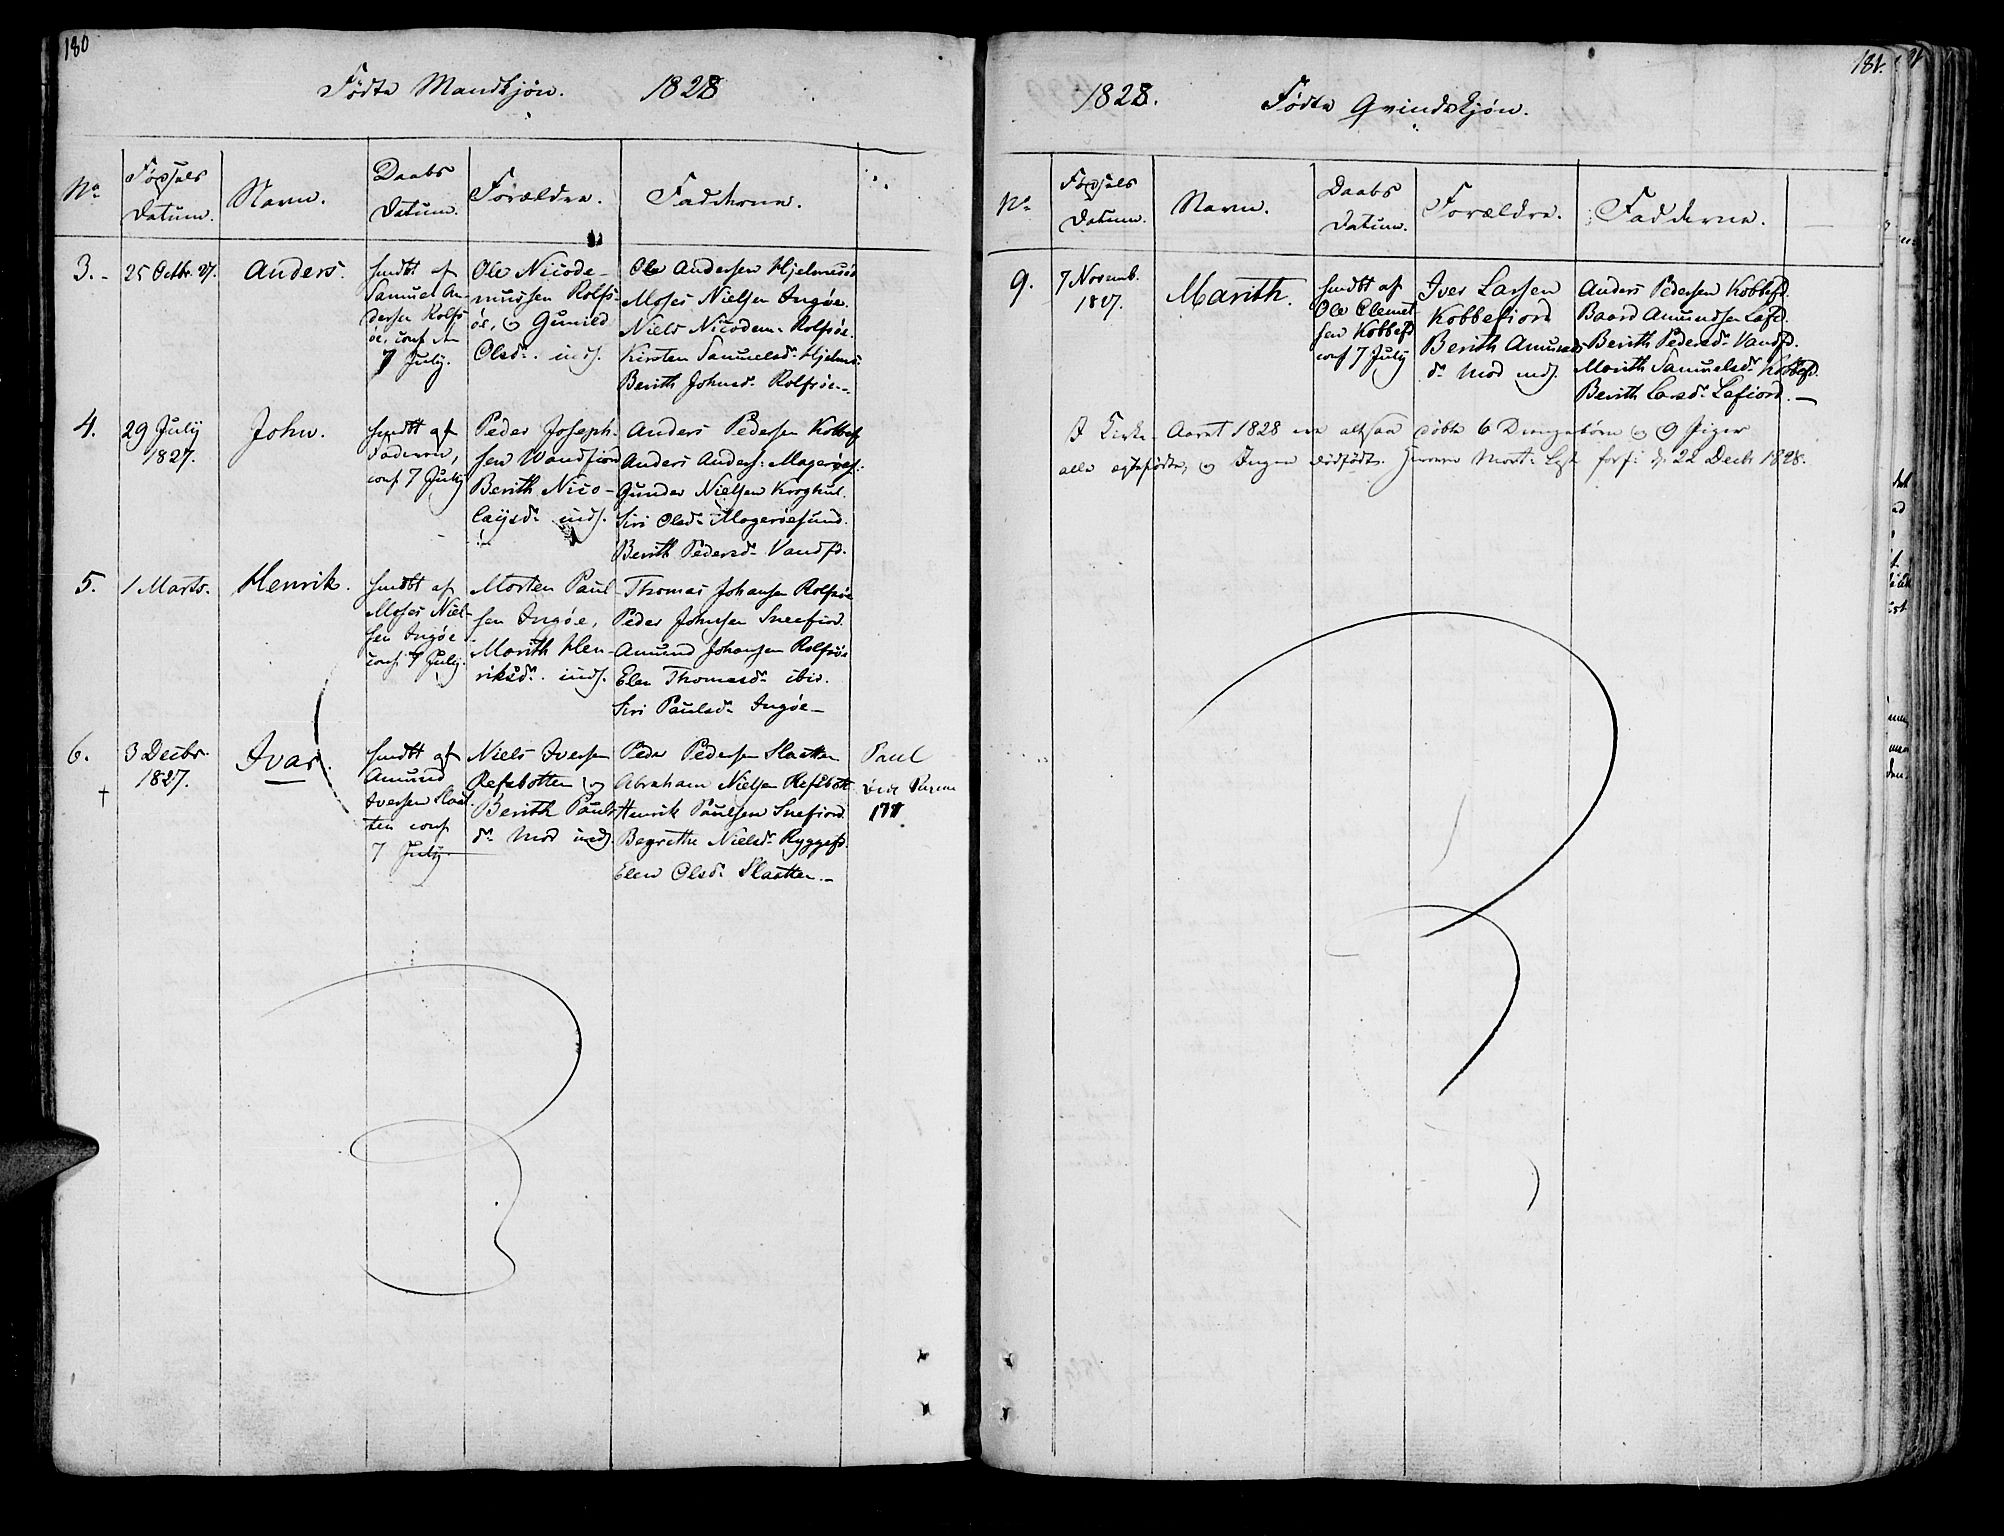 180
Fødte Mandkjøn. 1828
No
Fødsels
Datum.
Navn.
Daabs
Datum.
Forældre.
Fadderne.
3.
25 Octbr. 27.
Anders.
hmdbt af
Samuel An-
dersen Rolfs
øe, conf den
7 July.
Ole Nicode-
mussen Rolfs-
øe, og Gunild
Olsdr. inds.
Ole Andersen Hjelmsøe
Moses Nielsen Ingøe.
Niels Nicodem: Rolfsøe.
Kirsten Samuelsdr Hjelms:
Berith Johnsdr Rolfsøe
4.
29 July
1827.
John.
hmdbt af
Faderen,
conf 7 July
Peder Joseph-
sen Wandfiord
Berith Nico-
laysdr inds.
Anders Pedersen Kobbef
Anders Anders: Magerøes:
Gunder Nielsen
Siri Olsdr Magerøesund.
Berith Pedersdr Vandfd.
5.
1 Marts.
Henrik.
hmdbt af
Moses Niel-
sen Ingøe
conf 7 July.
Morten Paul-
sen Ingøe,
Marith Hen-
riksdr. inds.
Thomas Johansen Rolfsøe
Peder Johnsen Sneefiord.
Amund Johansen Rolfsøe
Elen Thomasdr ibid.
Siri Paulsdr Ingøe
6.
†
3 Decbr.
1827.
Ivar.
hmdbt af
Amund
Iversen Slaat
ten conf
7 July.
Niels Iversen
Refsbotten og
Berith Pauls
dr Mod inds.
Peder Pedersen Slaatten
Abraham Nielsen Refsbott
Henrik Paulsen Snefiord.
Begrethe Nielsdr Ryggefd.
Elen Olsdr Slaatten.
Paul
vide
177
181.
1828. Fødte Qvindekjøn.
No
Fødsels
Datum.
Navn.
Daabs
Datum.
Forældre.
Fadderne.
9.
7 Novemb.
1827.
Marith.
hmdbt af
Ole Clemet
sen Kobbefd
conf 7 July
Iver Larsen
Kobbefiord
Berith Amunds
dr Mod inds.
Anders Pedersen Kobbefd.
Baard Amundsen Lafd.
Berith Pedersdr Vandfd.
Marith Samuelsdr Kobbefd.
Berith Larsdr Lafiord.
I Kirke-Aaret 1828 ere altsaa døbte 6 Drengebørn og 9 Piger
alle egtefødte, og Ingen dødfødt. d. 22 Decbr 1828.